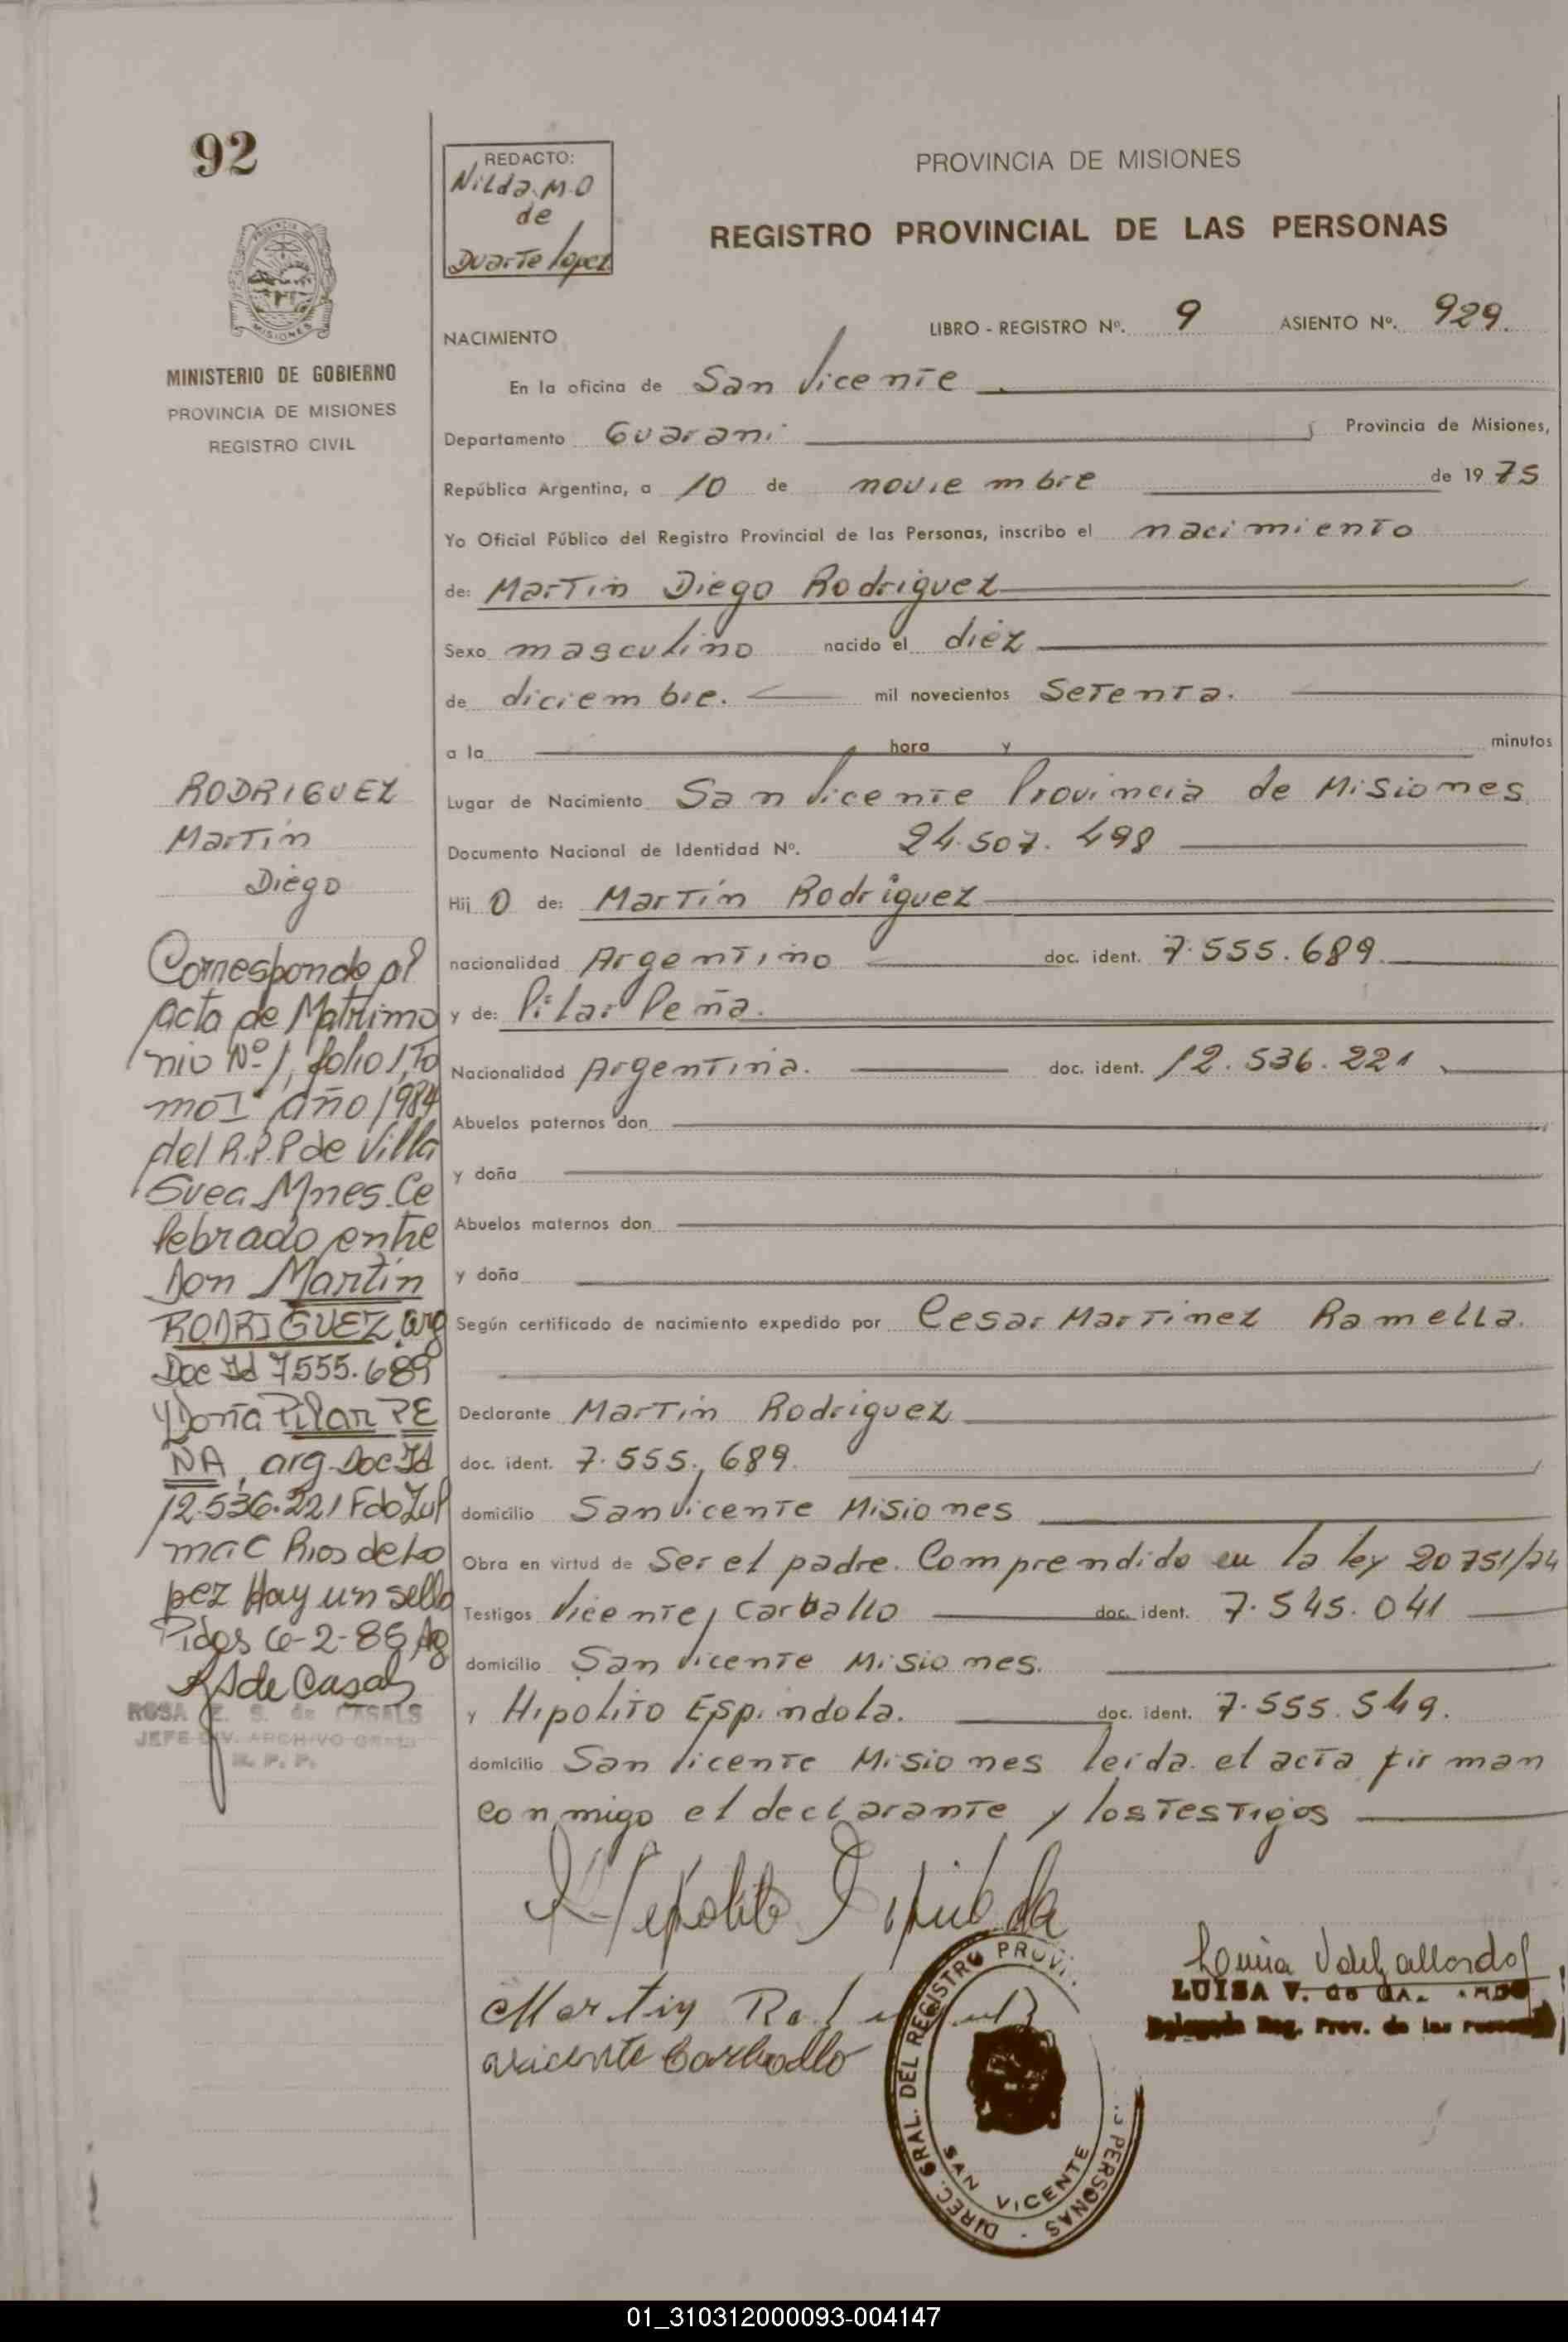 92
REDACTO:
Nilda M.O
de
Duarte lopez
PROVINCIA DE MISIONES
REGISTRO PROVINCIAL DE LAS PERSONAS
MISIONES
MINISTERIO DE GOBIERNO
PROVINCIA DE MISIONES
REGISTRO CIVIL
NACIMIENTO
LIBRO - REGISTRO Nº. 9 ASIENTO Nº. 929.
En la oficina de San Vicente
Departamento Guarani Provincia de Misiones,
República Argentina, a 10 de noviembre de 1975
Yo Oficial Público del Registro Provincial de las Personas, inscribo el nacimiento
de: Martin Diego Rodriguez
Sexo masculino nacido el diéz
de diciembre. mil novecientos Setenta.
a la hora y minutos
Lugar de Nacimiento San Vicente Provincia de Misiones
Documento Nacional de Identidad Nº. 24.507.498
Hij o de: Martín Rodriguez
nacionalidad Argentino doc. ident. 7.555.689.
y de: Pilar Peña.
Nacionalidad Argentina. doc. ident. 12.536.221
Abuelos paternos don
y doña
Abuelos maternos don
y doña
Según certificado de nacimiento expedido por Cesar Martinez Ramella.
Declarante Martín Rodriguez
doc. ident. 7.555.689.
domicilio San Vicente Misiones
Obra en virtud de Ser el padre. Comprendido en la ley 20751/74
Testigos Vicente Carballo doc. ident. 7.545.041
domicilio San Vicente Misiones.
y Hipolito Espindola. doc. ident. 7.555.549.
domicilio San Vicente Misiones leida el acta firman
conmigo el declarante y los testigos
RODRIGUEZ
Martín
Diego
Corresponde al
acta de Matrimo
nio Nº 1, folio 1, To
mo I año 1984
del R.P.P de Villa
Svea Mnes. Ce
lebrado entre
Don Martín
RODRIGUEZ, arg
Doc Id 7555.689
y Doña Pilar PE
ÑA, arg Doc Id
12.536.221 Fdo Zul
ma C Rios de Lo
pez Hay un sello
Pdas 6-2-86 Ag
RS de Casals
ROSA E. S. de CASALS
JEFE DIV. ARCHIVO GRAL
R. P. P.
Hipolito Espindola
Martin Rodriguez
Vicente Carballo
DIREC. GRAL. DEL REGISTRO PROV. PERSONAS -
SAN VICENTE
Luisa V de Gallardo
LUISA V. de
Delegada Reg. Prov. de las Personas
01_310312000093-004147